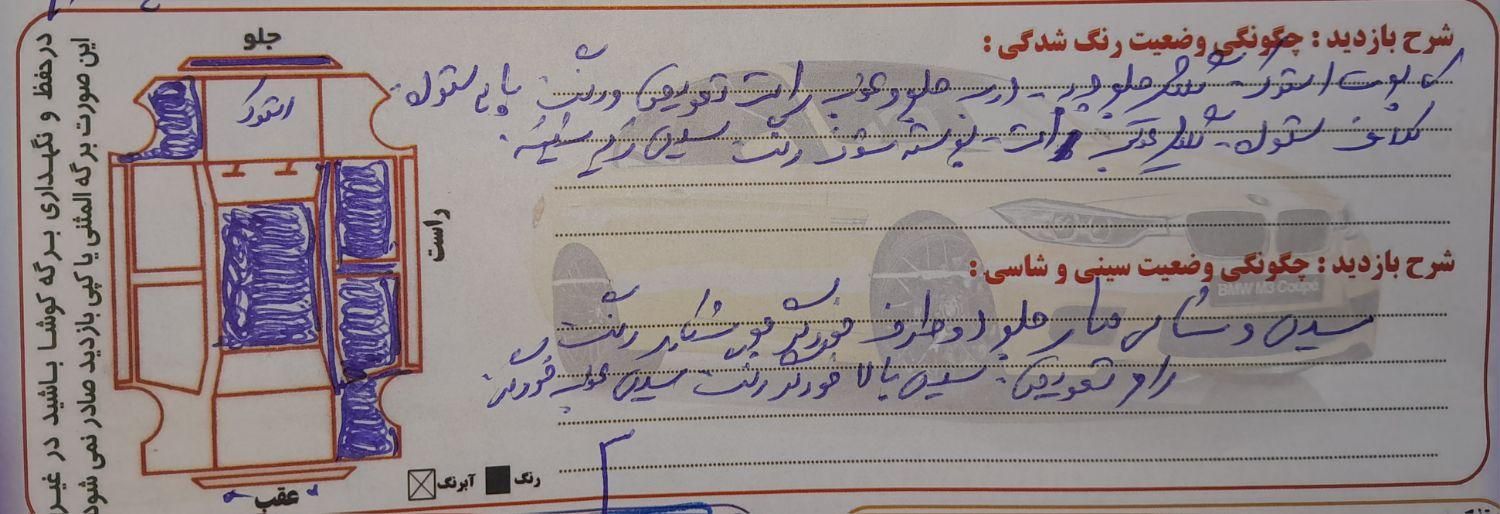 شرح بازدید : چگونگی وضعیت رنگ شدگی :
کاپوت استوک - گلگیر جلو چپ - درب جلو و عقب راست تعویض و رنگ پایی ستون -
سقف ستون - گلگیر عقب راست - پوسته ستون رنگ سینی رام
شرح بازدید : چگونگی وضعیت سینی و شاسی :
سینی و شاسی جلو دو طرف خوردگی رنگ
رام تعویض - سینی بالا خوردگی رنگ سینی عقب خوردگی
جلو
استوک
راست
عقب
رنگ
آبرنگ
BMW M3 Coupe
در حفظ و نگهداری برگه کوشا باشید در غیر
این صورت برگه المثنی یا کپی بازدید صادر نمی شود